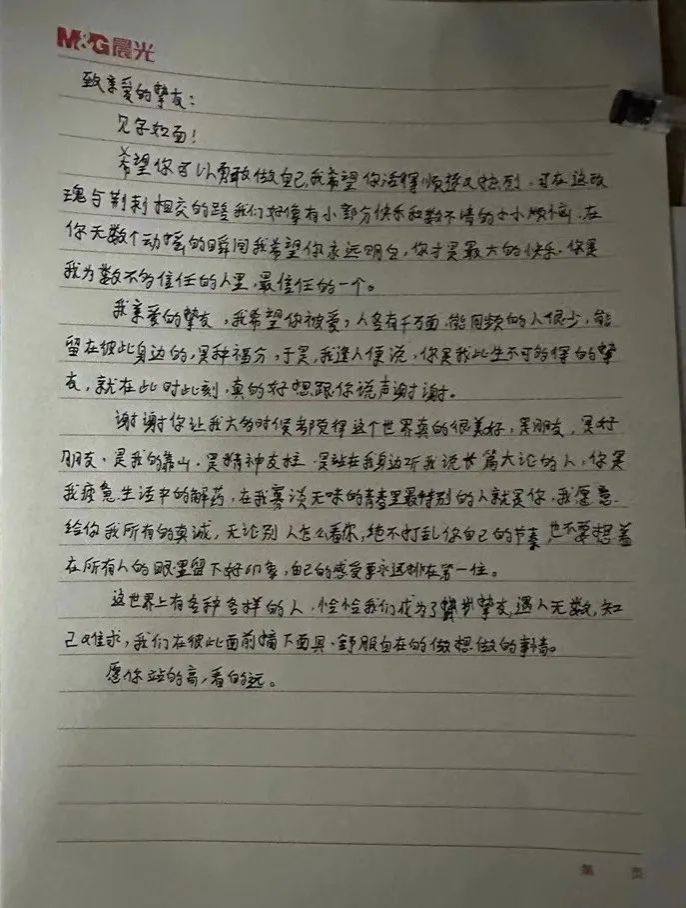 M&G晨光
致亲爱的挚友:
见字如面!
希望你可以勇敢做自己,我希望你活得顺遂又热烈,可在这玫
瑰与荆刺相交的路我们好像有小部分快乐和数不清的小小烦恼,在
你无数个动摇的瞬间我希望你永远明白,你才是最大的快乐.你是
我为数不多信任的人里,最信任的一个。
我亲爱的挚友,我希望你被爱,人各有千万面,能同频的人很少,能
留在彼此身边的,是种福分,于是,我逢人便说,你是我此生不可多得的挚
友,就在此时此刻,真的好想跟你说声谢谢。
谢谢你让我大多时候都觉得这个世界真的很美好,是朋友,是好
朋友.是我的靠山.是精神支柱.是站在我身边听我说长篇大论的人,你是
我疲惫生活中的解药,在我寡淡无味的青春里最特别的人就是你.我愿意
给你我所有的真诚,无论别人怎么看你,绝不打乱你自己的节奏,也不要想着
在所有人的眼里留下好印象,自己的感受要永远排在第一位。
这世界上有各种各样的人,恰恰我们成为了挚友,遇人无数,知
己难求,我们在彼此面前摘下面具.舒服自在的做想做的事情。
愿你站的高,看的远。
第 页